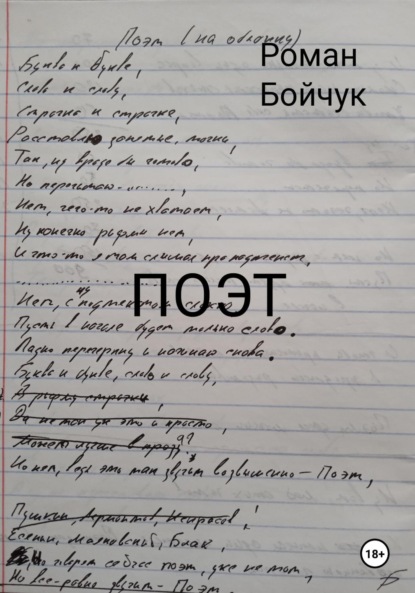 Поэт (на обложку)
Роман
Бойчук
Буква к букве,
Слово к слову,
Строчка к строчке,
Расставлю запятые, точки,
Так, ну вроде бы готово,
Но перечитаю..........,
Нет, чего-то не хватает,
Ну конечно рифмы нет,
И что-то я там слишком
....................
ПОЭТ
Нет, с
Пусть в начале будет только слово.
Ладно перечеркну и начинаю снова.
Буква к букве, слово к слову,
А рифму строчки,
Да не так уж это и просто,
Может лучше в прозу?
Но нет, ведь это так звучит возвышенно - Поэт,
Пушкин, Лермонтов, Некрасов,!
Есенин, Маяковский, Блок,
Но говорят сейчас поэт, уже не так,
Но все-равно звучит - Поэт.
18+
Б